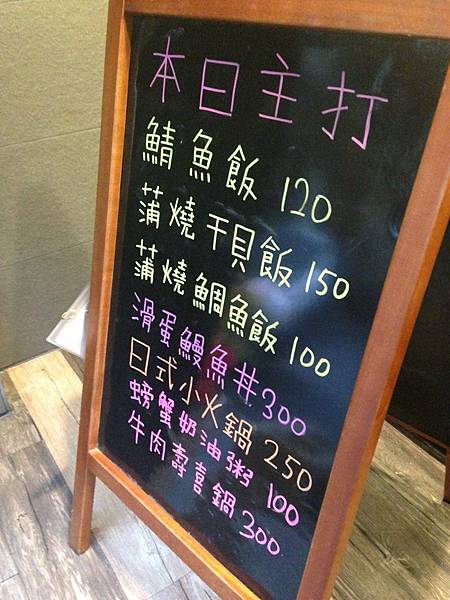 本日主打
鯖魚飯 120
蒲燒干貝飯 150
蒲燒鯛魚飯 100
滑蛋鰻魚丼 300
日式小火鍋 250
螃蟹奶油粥 100
牛肉壽喜鍋 300